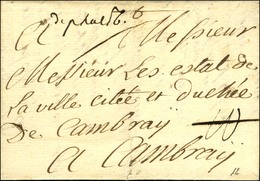 A Messieur
Messieur Les estat de
La ville citée et duchée
De Cambray
a Cambray